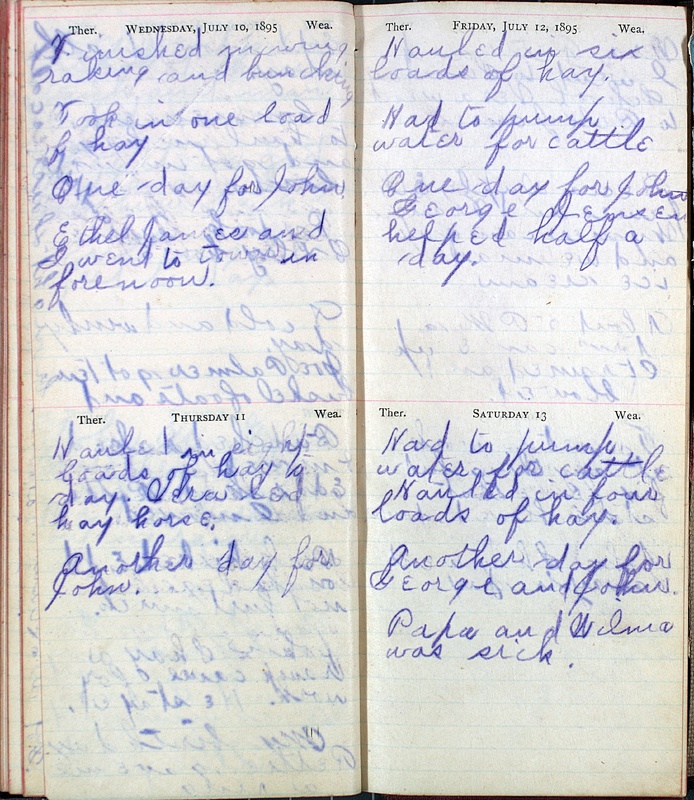 Ther. WEDNESDAY, JULY 10, 1895 Wea.
Finished mowing
raking and bunching
Took in one load
of hay
One day for John.
Ethel Janee and
I went to town in
forenoon.
Ther. THURSDAY 11 Wea.
Hauled in eight
loads of hay to
day. I led
hay horse.
Another day for
John.
Ther. FRIDAY, JULY 12, 1895 Wea.
Hauled in six
loads of hay.
Had to pump
water for cattle
One day for John
George Jensen
helped half a
day.
Ther. SATURDAY 13 Wea.
Had to pump
water for cattle
Hauled in four
loads of hay.
Another day for
George and John.
Papa and Wilma
was sick.